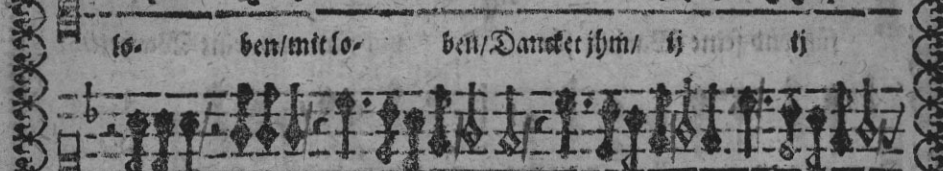 lo- ben/mit lo- ben/Dancket jhm/ ij ij